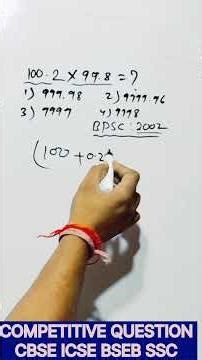 100.2 × 99.8 = ?
1) 999.98 2) 9999.96
3) 9997 4) 9998
BPSC: 2002
(100 + 0.2
COMPETITIVE QUESTION
CBSE ICSE BSEB SSC